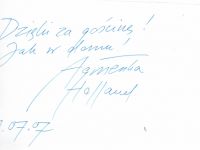 Dzięki za gościnę!
Jak w domu!
Agnieszka
Holland
.07.07